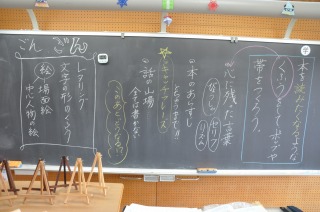 本を読みたくなるような
くふうをしてポップや
帯をつくろう。
・心に残った言葉
なぜ
セリフ
・本のあらすじ
キャッチフレーズ
・話の山場
全ては書かない
このあとどうなる
ごん
レタリング
文字の形のくふう
絵
場面絵
中心人物の絵